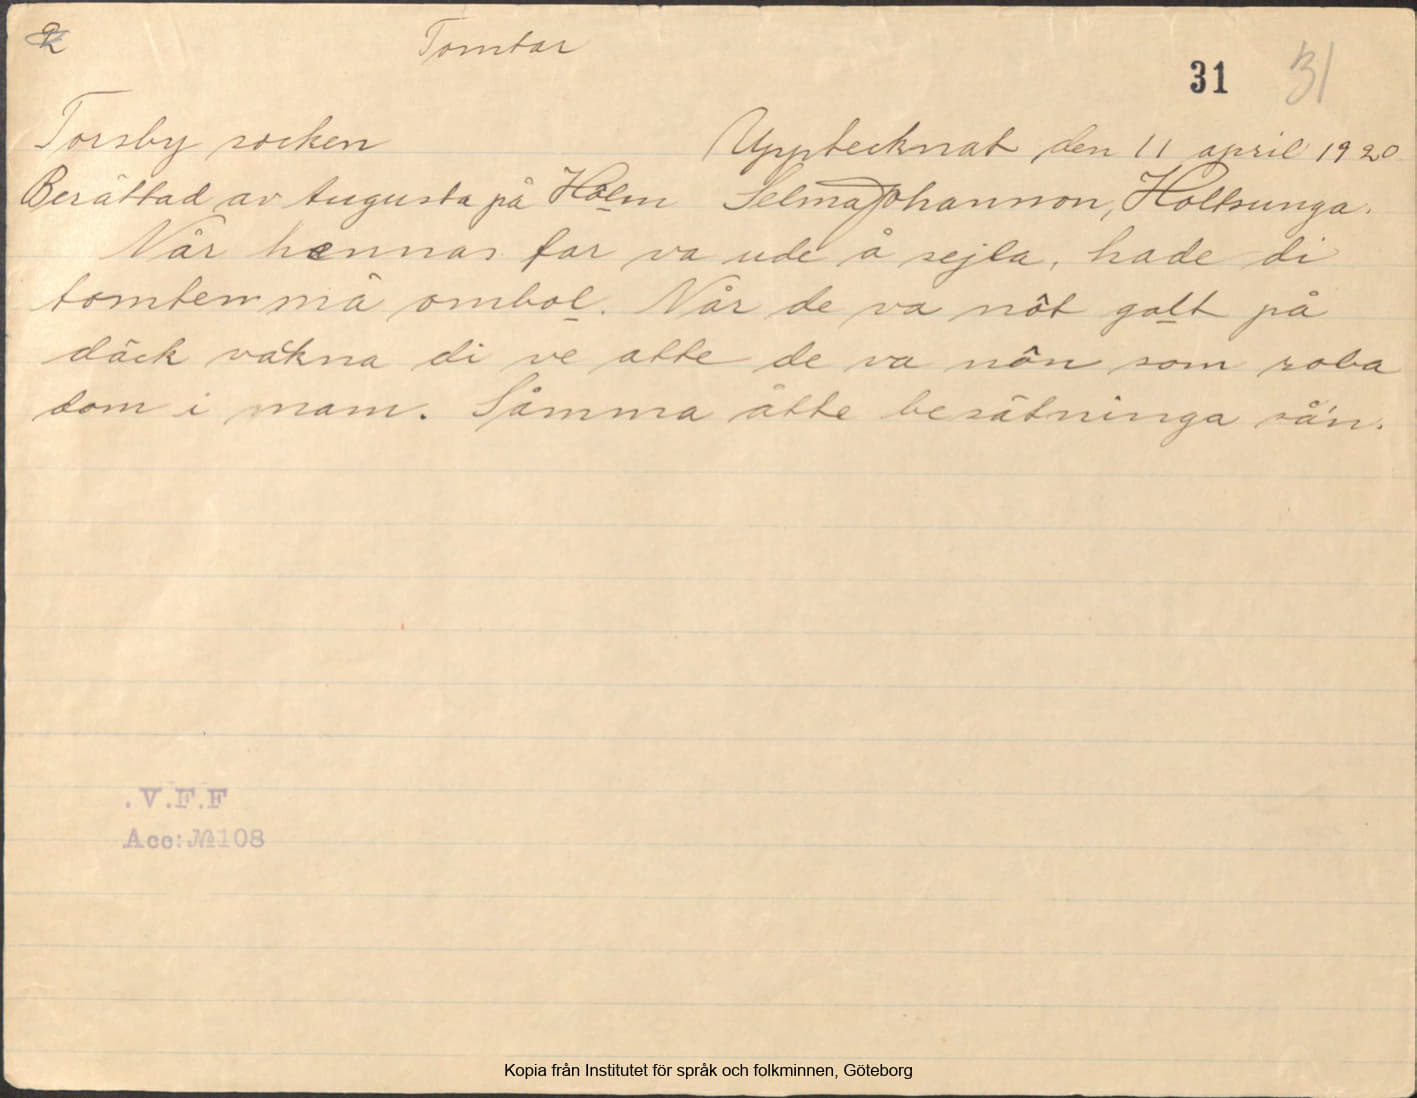 Tomtar
31 31
Torsby socken Upptecknat den 11 april 1920
Berättad av Augusta på Hålm Selma Johansson, Holtsunga.
När hennas far va ude å sejla, hade di
tomten mä ombol. När de va nôt galt på
däck vákna di ve atte de va nôn som roba
dom i mam. Såmma åtte besätninga sån.
.V.F.F
Acc: № 108
Kopia från Institutet för språk och folkminnen, Göteborg